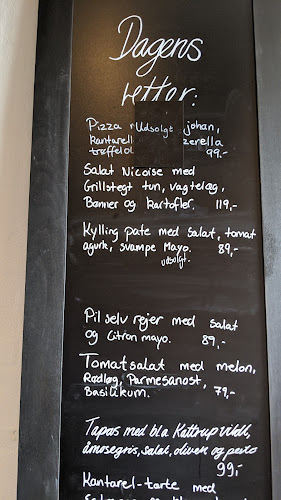 Dagens
retter:
Pizza Udsolgt johan,
kantarel zerella
trøffelol 99,-
Salat Nicoise med
Grillstegt tun, vagtelæg,
Bønner og kartofler. 119,-
Kylling pate med salat, tomat
agurk, svampe Mayo. 89,-
udsolgt.
Pil selv rejer med salat
og Citron mayo. 89,-
Tomatsalat med melon,
Rødløg, Parmesanost,
Basilikum. 79,-
Tapas med bla Kattrup vildt,
åmosegris, salat, oliven og pesto
99,-
Kantarel-tarte med